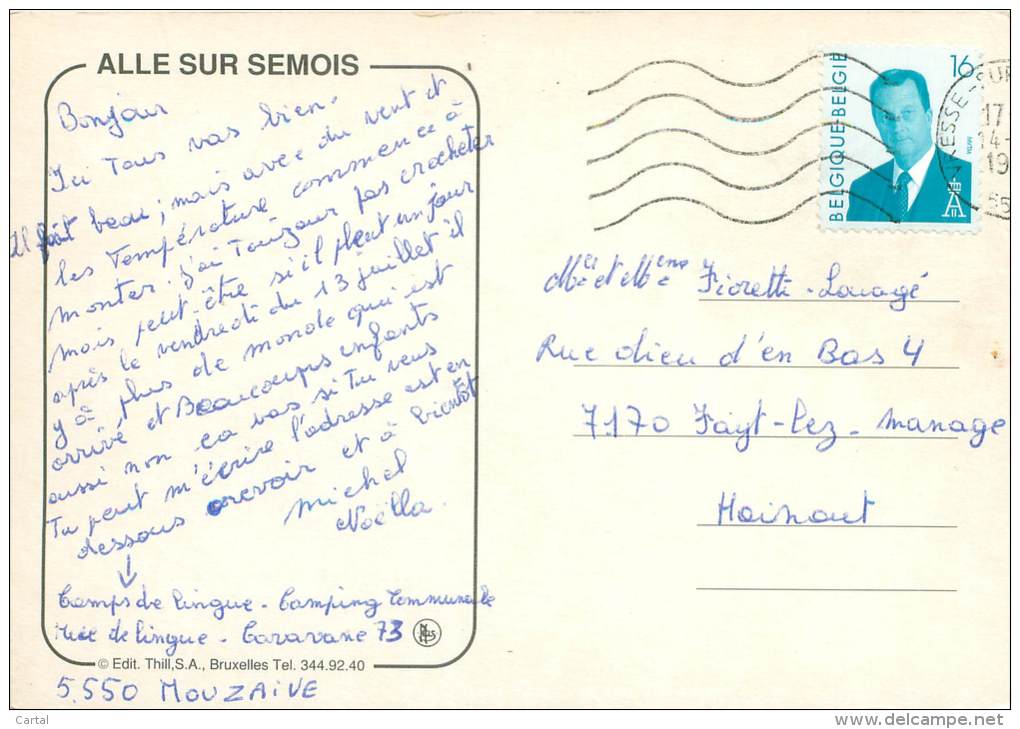 ALLE SUR SEMOIS
Bonjour
Ici Tous vas bien.
Il fait beau; mais avec du vent et
les Température commence à
monter. J'ai Toujour pas crocheter
mais peut-être si il pleut un jour
après le vendredi du 13 juillet il
y a plus de monde qui est
arrivé et Beaucoups enfants
aussi non ca vas si Tu veus
Tu peut m'écrire l'adresse est en
dessous orevoir et à bientot
Michel
Noëlla.
Camps de lingue - Camping Communale
Rue de lingue - Caravane 73
© Edit. Thill, S.A., Bruxelles Tel. 344.92.40
5.550 MOUZAIVE
BELGIQUE-BELGIE
16
17
14-
19
Mr et Mme Fioretti-Louagé
Rue dieu d'en Bas 4
7170 Fayt-lez-manage
Hainaut
Cartal
www.delcampe.net